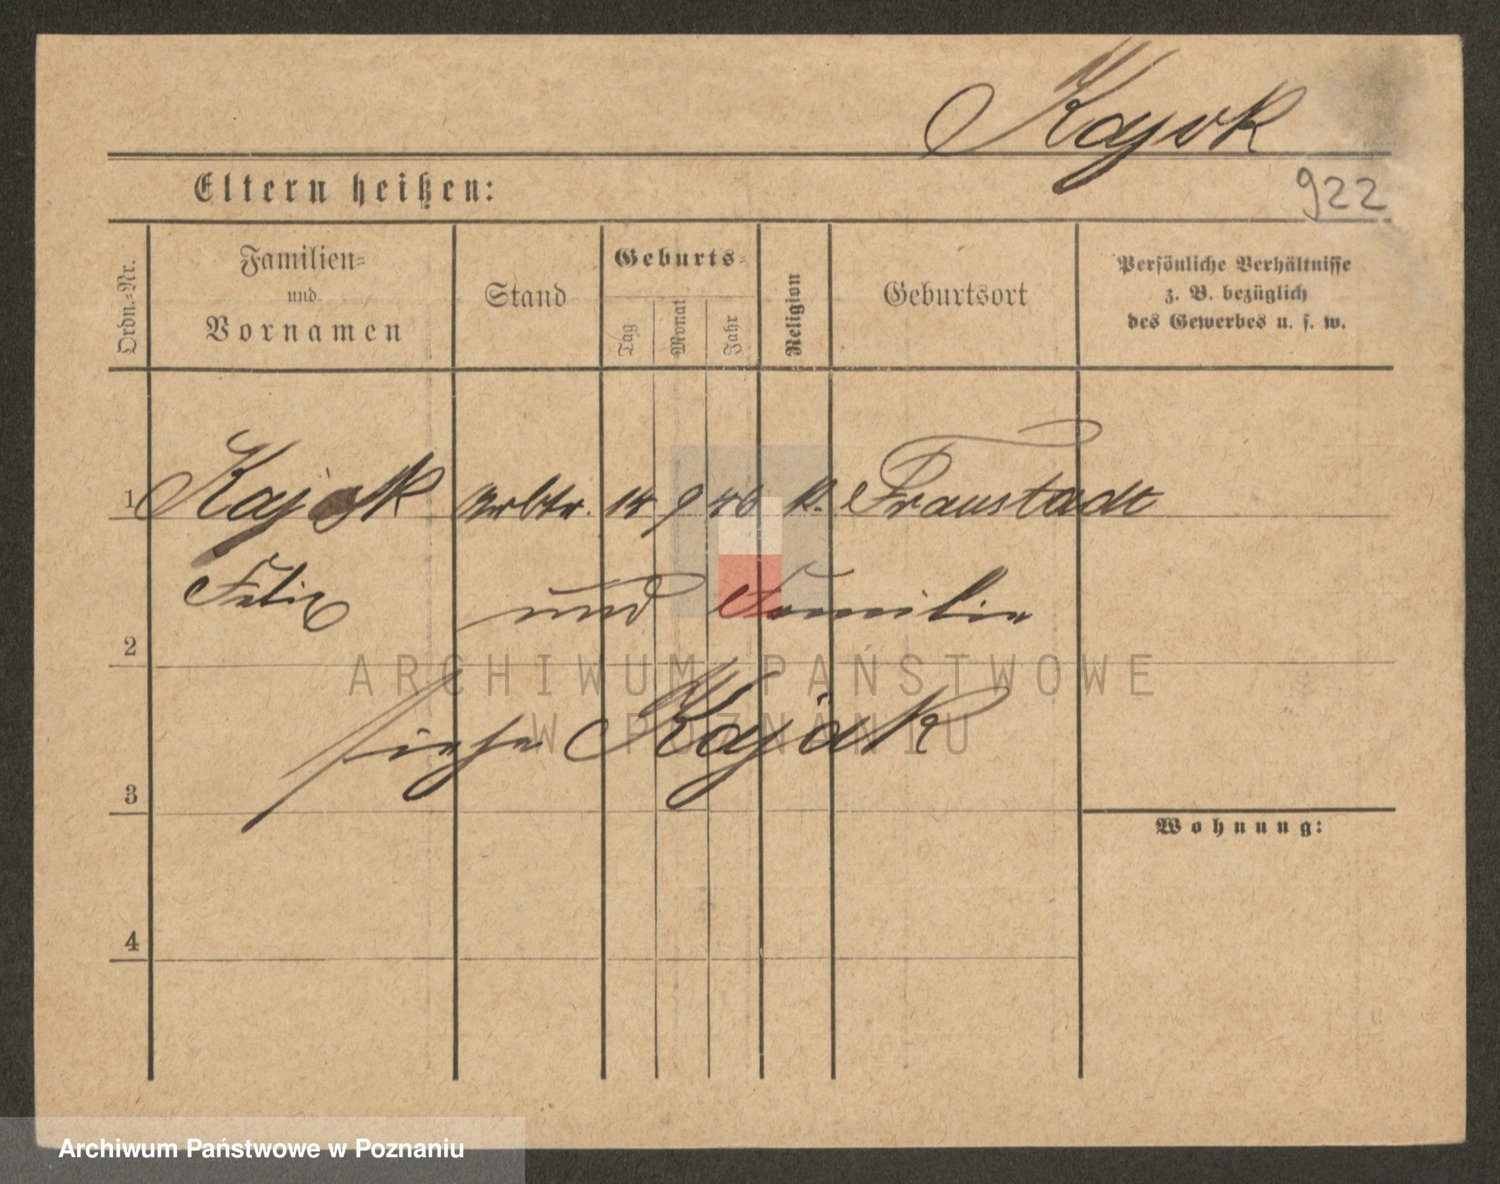 Kajok
Eltern heißen:
922
Ordn.=Nr.
Familien=
und
Vornamen
Stand
Geburts=
Tag
Monat
Jahr
Religion
Geburtsort
Persönliche Verhältnisse
z. B. bezüglich
des Gewerbes u. s. w.
1 Kajok Arbtr. 14 9 46 k. Fraustadt
Felix und Familie
2
ARCHIWUM PAŃSTWOWE
W POZNANIU
siehe Kajak
3
Wohnung:
4
Archiwum Państwowe w Poznaniu